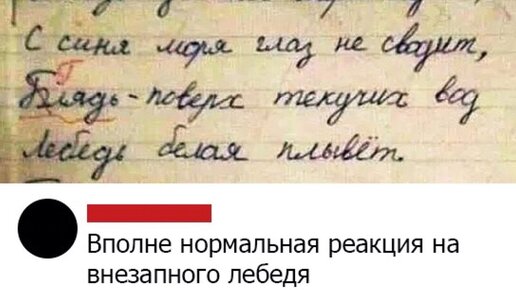 С синя моря глаз не сводит,
Г
Блядь - поверх текучих вод
Лебедь белая плывёт.
Вполне нормальная реакция на
внезапного лебедя